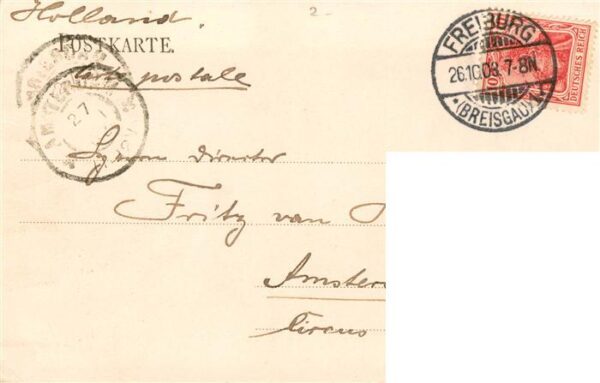 Holland.
2-
POSTKARTE.
Carte postale
FREIBURG
26.10.03. 7-8N.
*(BREISGAU)1*
DEUTSCHES REICH
10
AMSTERDAM
27
director
Fritz van
Amster
Circus